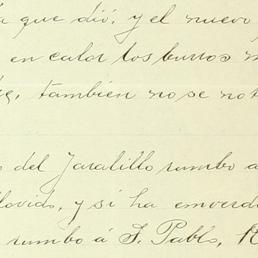 que dió, y el nuevo
en calor los burros
tambien no se not
del Jaralillo rumbo a
llovido, y si ha enverd
rumbo á S. Pablo,